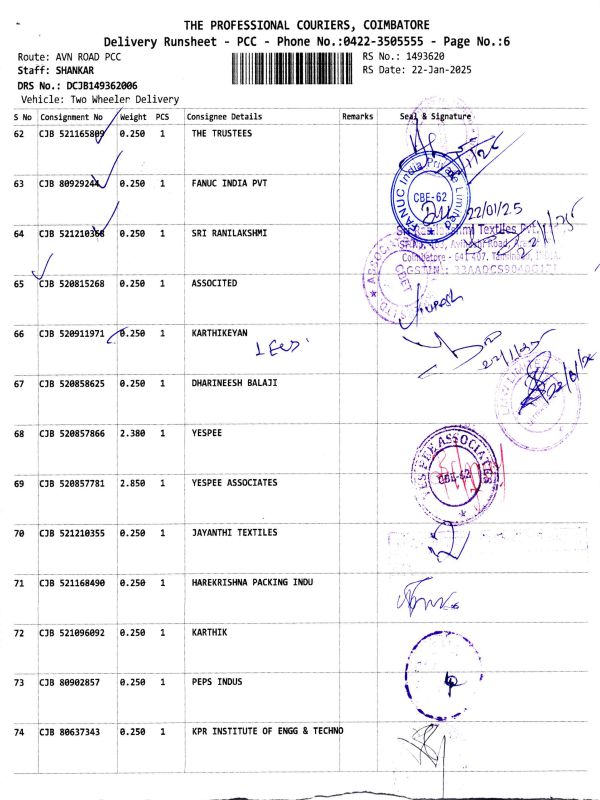 THE PROFESSIONAL COURIERS, COIMBATORE
Delivery Runsheet - PCC - Phone No.:0422-3505555 - Page No.:6
Route: AVN ROAD PCC
RS No.: 1493620
Staff: SHANKAR
RS Date: 22-Jan-2025
DRS No.: DCJB149362006
Vehicle: Two Wheeler Delivery
S No Consignment No Weight PCS Consignee Details Remarks Seal & Signature
62 CJB 521165809 0.250 1 THE TRUSTEES
63 CJB 80929244 0.250 1 FANUC INDIA PVT
FANUC India Private Limited
CBE-62
22/01/25
64 CJB 521210368 0.250 1 SRI RANILAKSHMI
65 CJB 520815268 0.250 1 ASSOCITED
66 CJB 520911971 0.250 1 KARTHIKEYAN
22/1/25
67 CJB 520858625 0.250 1 DHARINEESH BALAJI
68 CJB 520857866 2.380 1 YESPEE
YES PEE ASSOCIATES
CBE-62
69 CJB 520857781 2.850 1 YESPEE ASSOCIATES
70 CJB 521210355 0.250 1 JAYANTHI TEXTILES
71 CJB 521168490 0.250 1 HAREKRISHNA PACKING INDU
72 CJB 521096092 0.250 1 KARTHIK
73 CJB 80902857 0.250 1 PEPS INDUS
74 CJB 80637343 0.250 1 KPR INSTITUTE OF ENGG & TECHNO